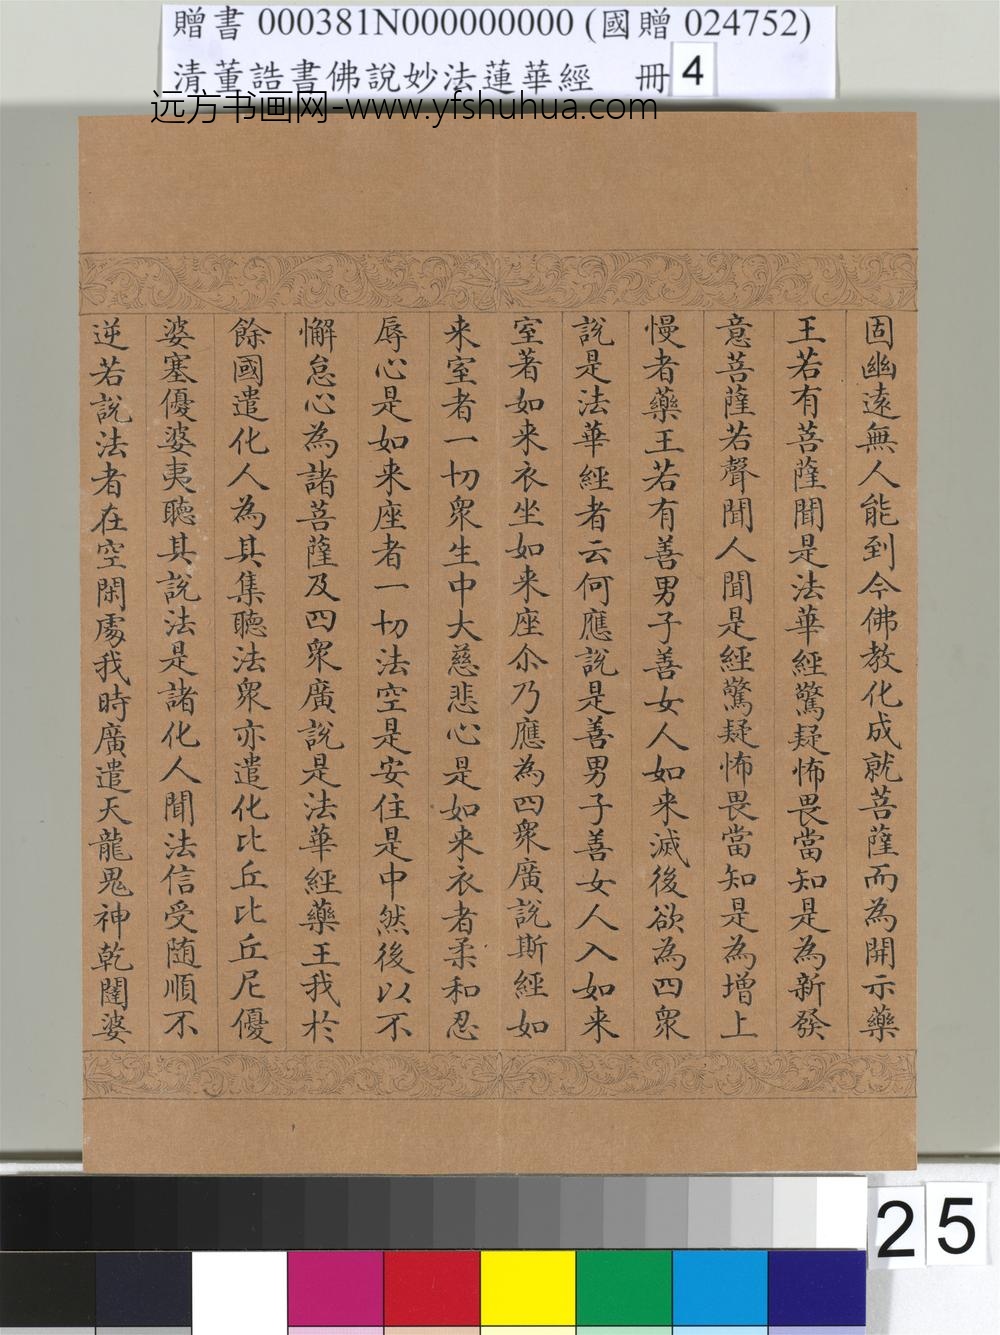 贈書 000381N000000000 (國贈 024752)
清董誥書佛說妙法蓮華經 冊 4
远方书画网-www.yfshuhua.com
固幽遠無人能到今佛教化成就菩薩而為開示藥
王若有菩薩聞是法華經驚疑怖畏當知是為新發
意菩薩若聲聞人聞是經驚疑怖畏當知是為增上
慢者藥王若有善男子善女人如来滅後欲為四衆
說是法華經者云何應說是善男子善女人入如来
室著如来衣坐如来座尒乃應為四衆廣說斯經如
来室者一切衆生中大慈悲心是如来衣者柔和忍
辱心是如来座者一切法空是安住是中然後以不
懈怠心為諸菩薩及四衆廣說是法華經藥王我於
餘國遣化人為其集聽法衆亦遣化比丘比丘尼優
婆塞優婆夷聽其說法是諸化人聞法信受随順不
逆若說法者在空閑處我時廣遣天龍鬼神乾闥婆
25